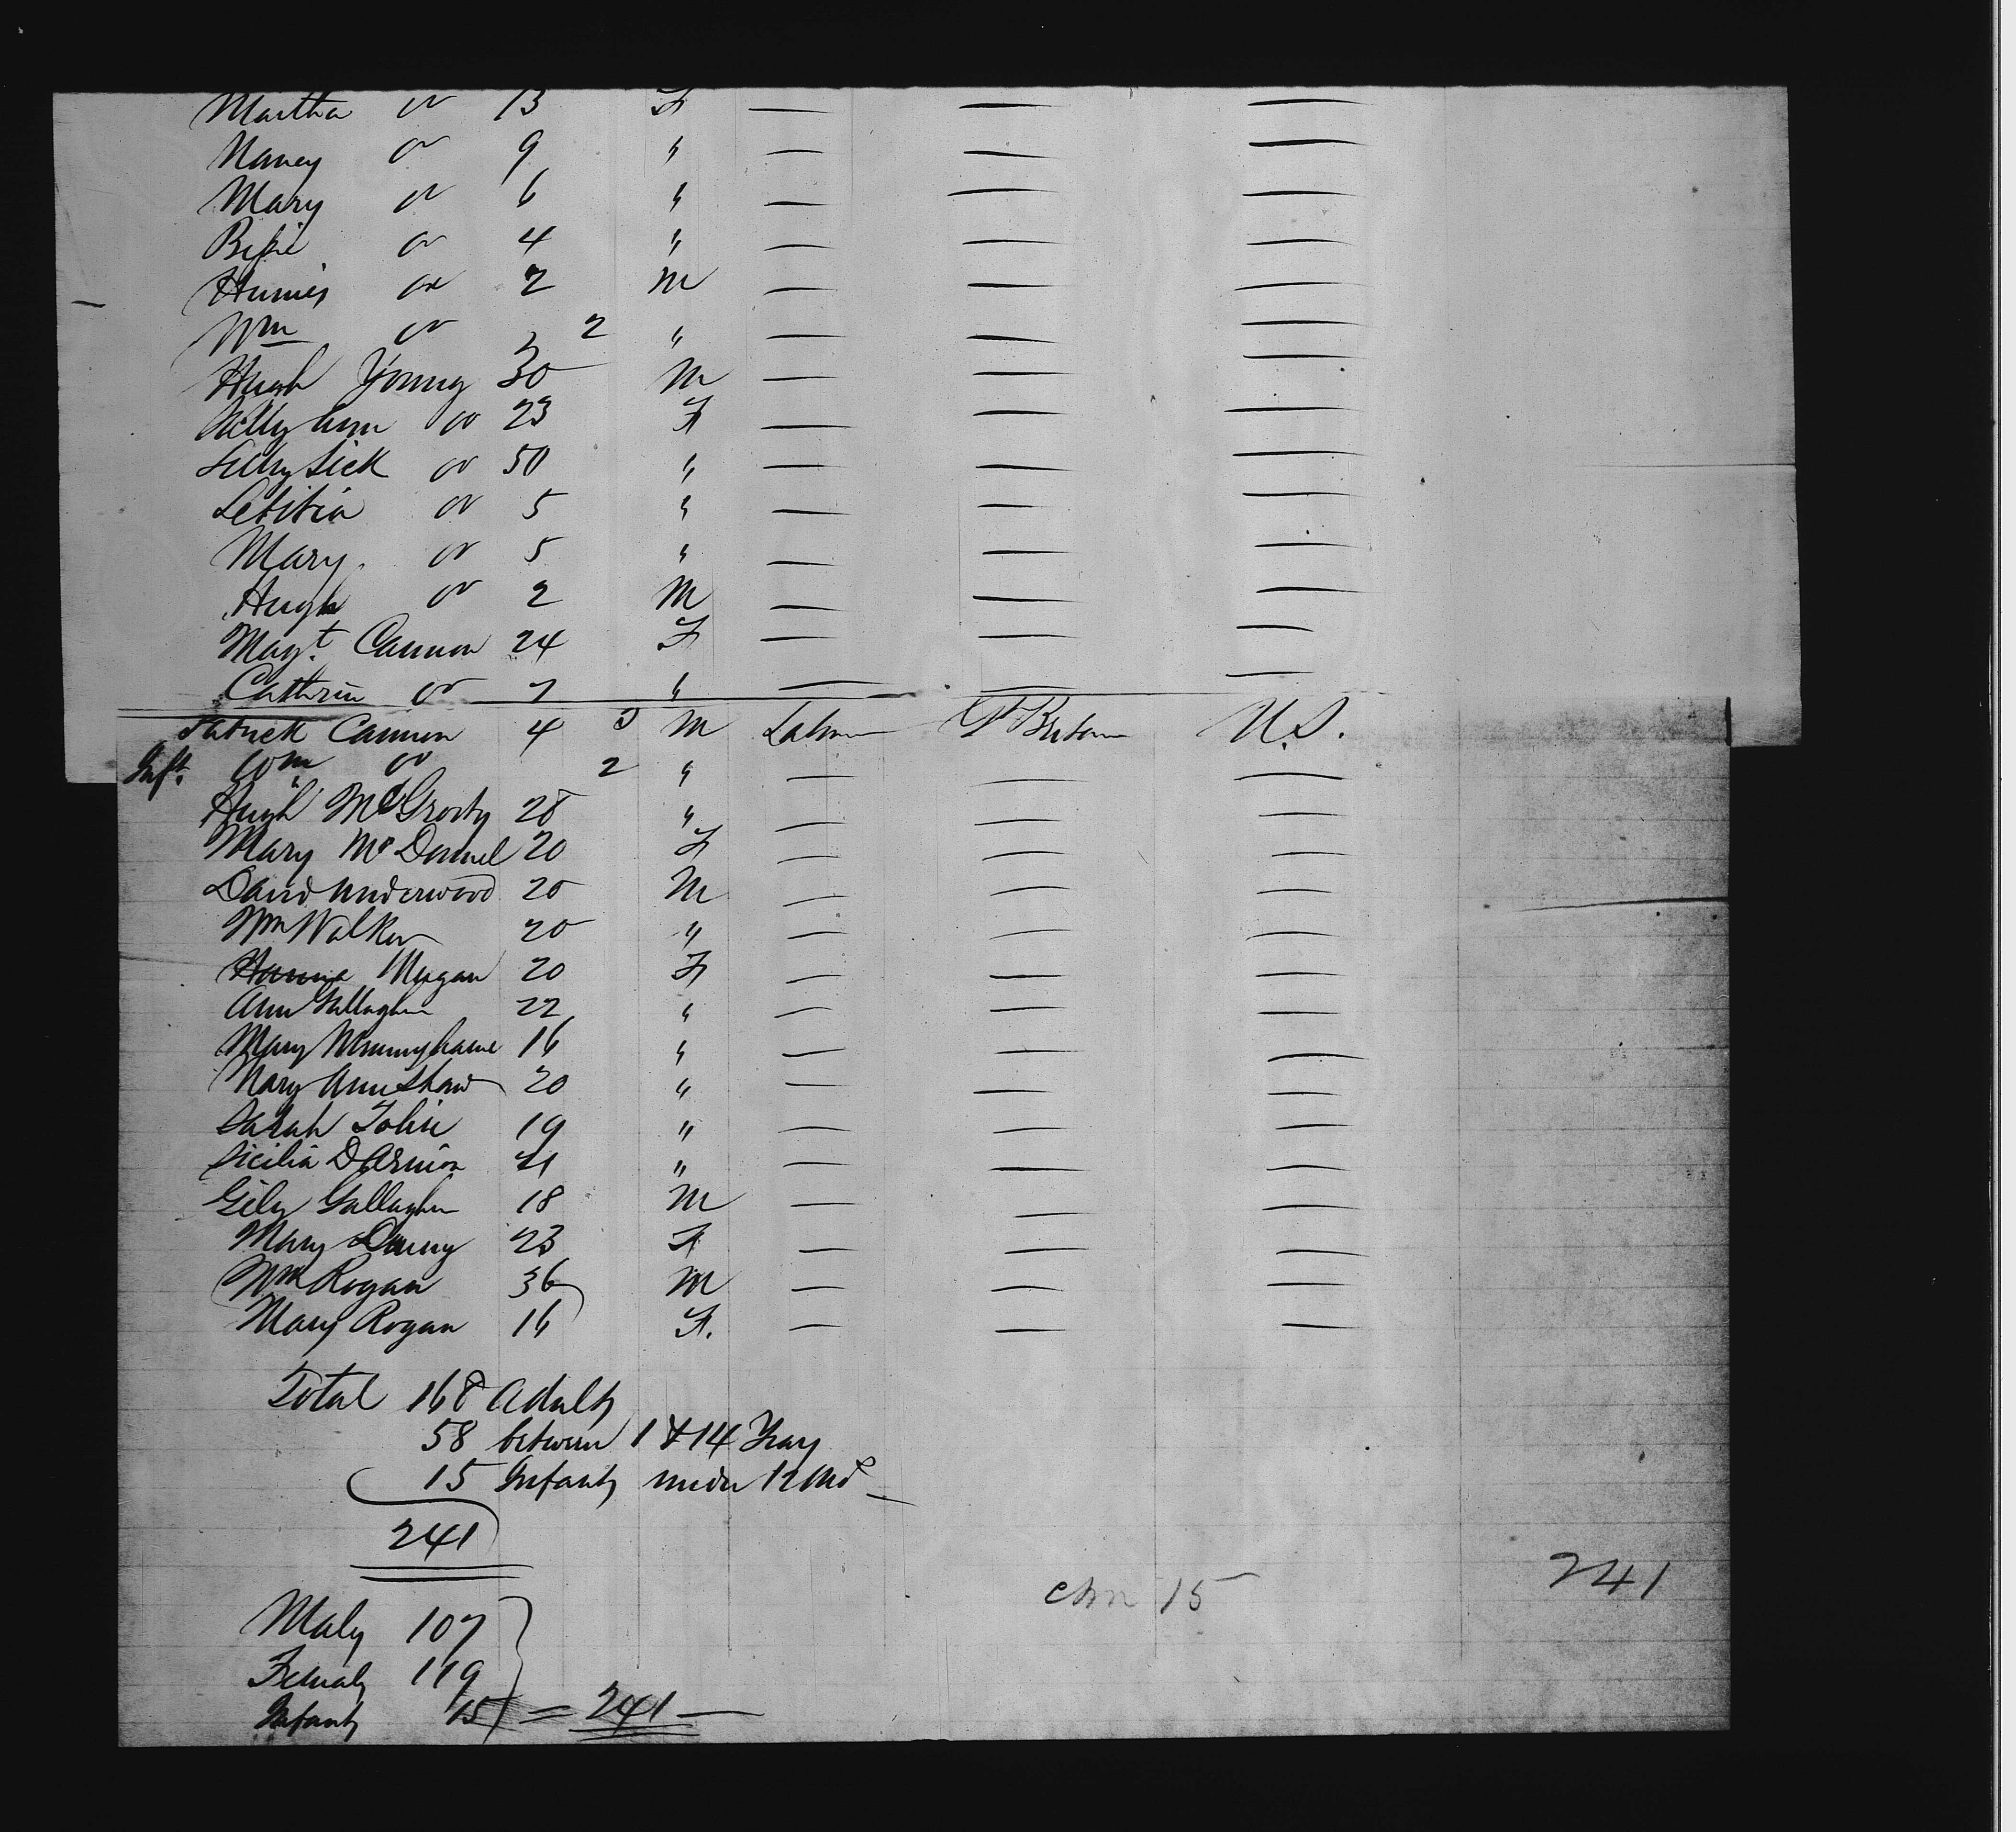 Martha do 13 F — — —
Nancy do 9 " — — —
Mary do 6 " — — —
Bessie do 4 " — — —
do 2 M — — —
Wm do 2 " — — —
Hugh Young 30 M — — —
Ann do 23 F — — —
do 50 " — — —
Letitia do 5 " — — —
Mary do 5 " — — —
Hugh do 2 M — — —
Magt. Cannon 24 F — — —
Cathrin do 7 " — — —
Patrick Cannon 4 M Labour Gt Britain U.S.
Inft. Wm do 2 " — — —
Hugh McGrorty 28 " — — —
Mary McDannel 20 F — — —
David Underwood 20 M — — —
Wm Walker 20 " — — —
Mugan 20 F — — —
Ann Gallagher 22 " — — —
Mary 16 " — — —
Mary Ann Shaw 20 " — — —
Sarah 19 " — — —
Sicilia " — — —
Gallagher 18 M — — —
Mary 23 F — — —
Wm Rogan 36 M — — —
Mary Rogan 16 F. — — —
Total 168 Adults
58 between 1 & 14 Years
15 Infants under 12 Mo —
241
241
chn 15
Males 107
Females 119
Infants 15 = 241 —